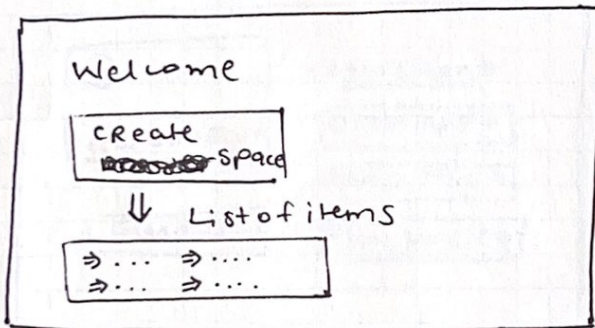 Welcome
CReate
Space
⇓ List of items
⇒ .... ⇒ ....
⇒ ... ⇒ ....